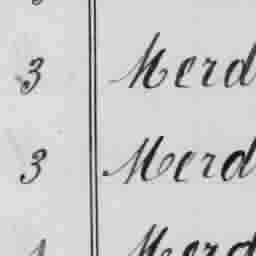 3 Merd
3 Merd
Merd